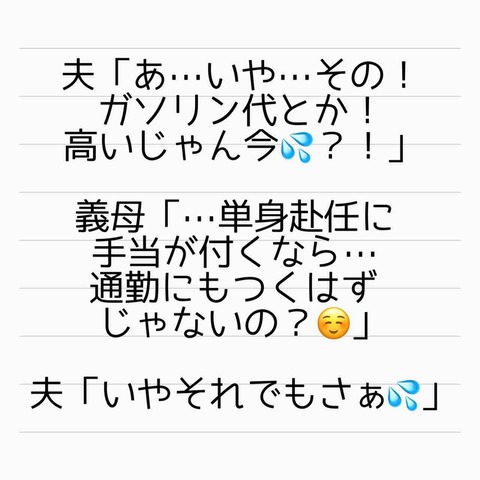 夫「あ…いや…その！
ガソリン代とか！
高いじゃん今💦？！」
義母「…単身赴任に
手当が付くなら…
通勤にもつくはず
じゃないの？☺️」
夫「いやそれでもさぁ💦」